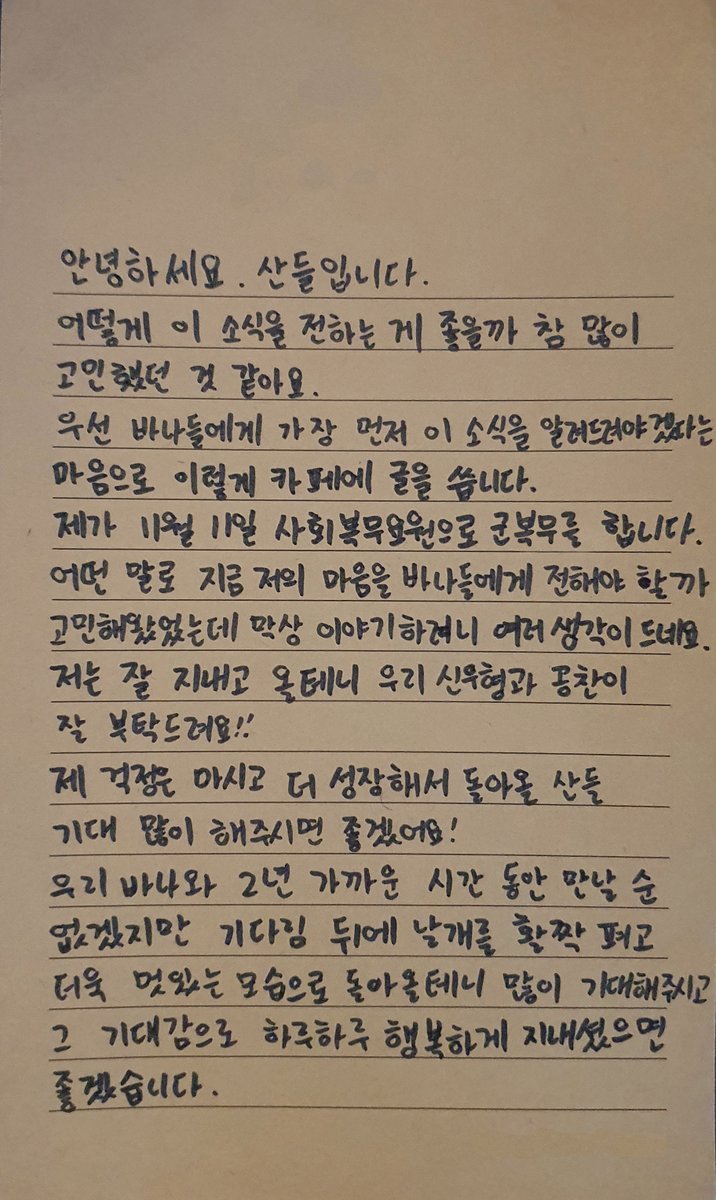 안녕하세요. 산들입니다.
어떻게 이 소식을 전하는 게 좋을까 참 많이
고민했던 것 같아요.
우선 바나들에게 가장 먼저 이 소식을 알려드려야겠다는
마음으로 이렇게 카페에 글을 씁니다.
제가 11월 11일 사회복무요원으로 군복무를 합니다.
어떤 말로 지금 저의 마음을 바나들에게 전해야 할까
고민해왔었는데 막상 이야기하려니 여러 생각이 드네요.
저는 잘 지내고 올테니 우리 신우형과 공찬이
잘 부탁드려요!!
제 걱정은 마시고 더 성장해서 돌아올 산들
기대 많이 해주시면 좋겠어요!
우리 바나와 2년 가까운 시간 동안 만날 순
없겠지만 기다림 뒤에 날개를 활짝 펴고
더욱 멋있는 모습으로 돌아올테니 많이 기대해주시고
그 기대감으로 하루하루 행복하게 지내셨으면
좋겠습니다.